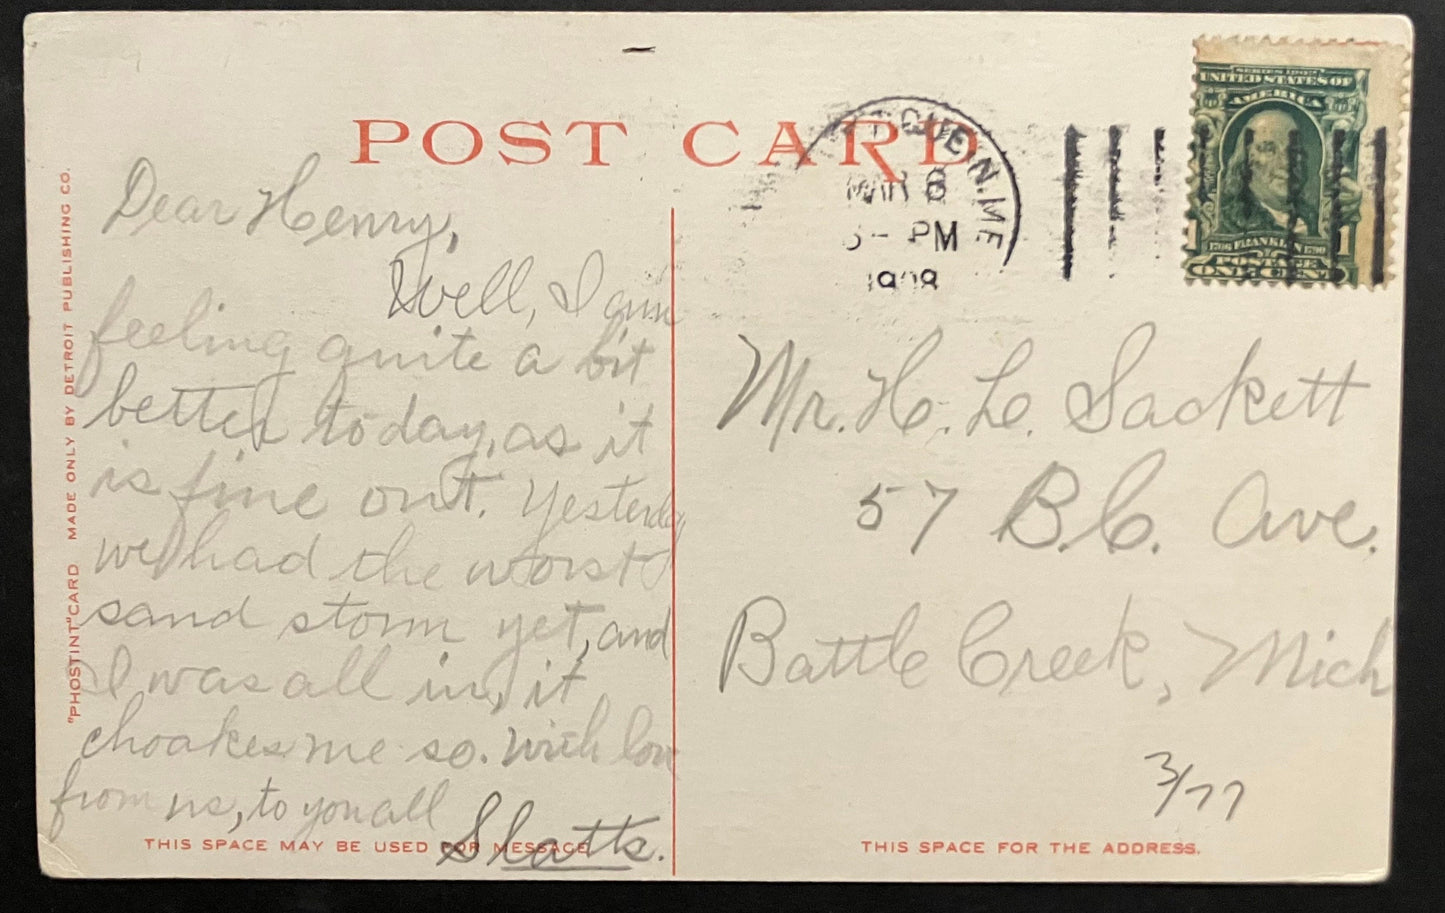 POST CARD
QUE, N. ME
MAR 8
PM
1908
SERIES 1902
UNITED STATES OF
AMERICA
1706 FRANKLIN 1790
1 1
POSTAGE
ONE CENT
"PHOSTINT" CARD MADE ONLY BY DETROIT PUBLISHING CO.
Dear Henry,
Well, I am
feeling quite a bit
better today, as it
is fine out. Yesterday
we had the worst
sand storm yet, and
I was all in, it
choakes me so. With love
from us, to you all
Slatts.
THIS SPACE MAY BE USED FOR MESSAGE
Mr. H. L. Sackett
57 B.C. Ave.
Battle Creek, Mich
3/77
THIS SPACE FOR THE ADDRESS.